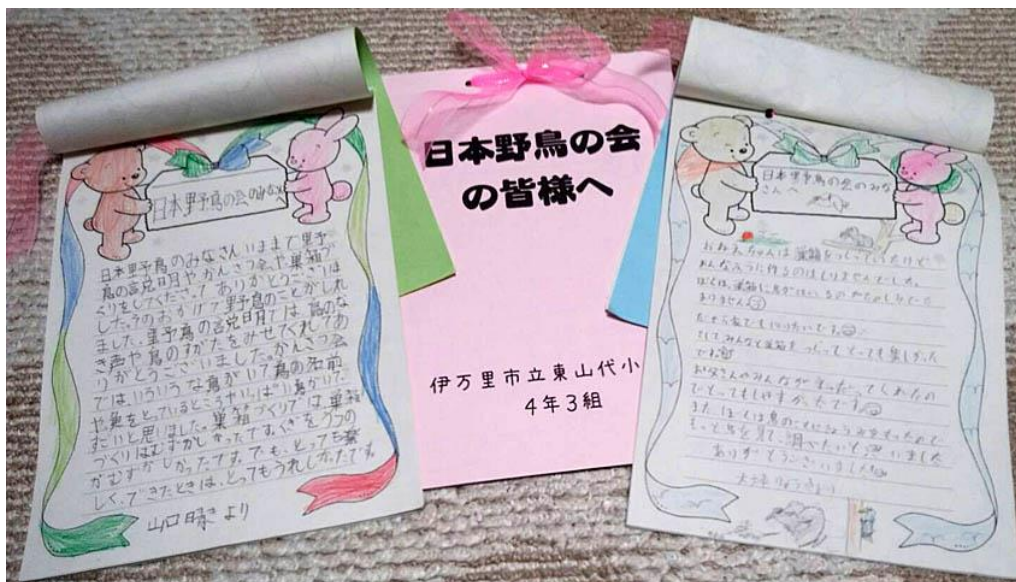 日本野鳥の会のみなさんへ
日本野鳥のみなさんいままで野
鳥の説明やかんさつ会や巣箱づ
くりをしてくださってありがとうございま
した。そのおかげで野鳥のことがしれ
ました。野鳥の説明では鳥のな
き声や鳥のすがたをみせてくれてあ
りがとうございました。かんさつ会
では、いろいろな鳥がいて鳥の名前
や魚をとっているところやいっぱい鳥がいた
すごいと思いました。巣箱づくりでは巣箱
づくりはむずかしかったです。くぎをうつの
がむずかしかったです。でも、とっても楽
しく、できたときは、とってもうれしかったです。
山口 より
日本野鳥の会
の皆様へ
伊万里市立東山代小
4年3組
日本野鳥の会のみな
さんへ
おねえちゃんは巣箱をつくっていたけど
あんなふうに作るのはしりませんでした。
ぼくは、巣箱に鳥がはいるのがたのしみでた
まりません
だから家でも作りたいです
そして、みんなと巣箱をつくってとっても楽しかった
です
お父さんのみんながてつだってくれたの
でとってもしやすかったです
また、ぼくは鳥のことにきょうみをもったので
もっと鳥を見て、調べたいと思いました
ありがとうございました
より